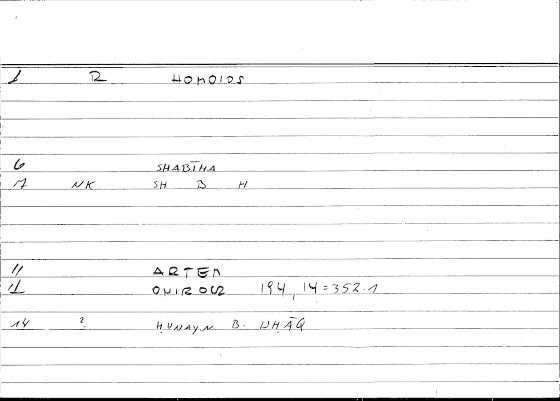 1 R HOMOIOS
6 SHABĪHA
7 NK SH B H
11 ARTEM
ONIROCR 194, 14=352.1
14 ? ḤUNAYN B. ISḤĀQ